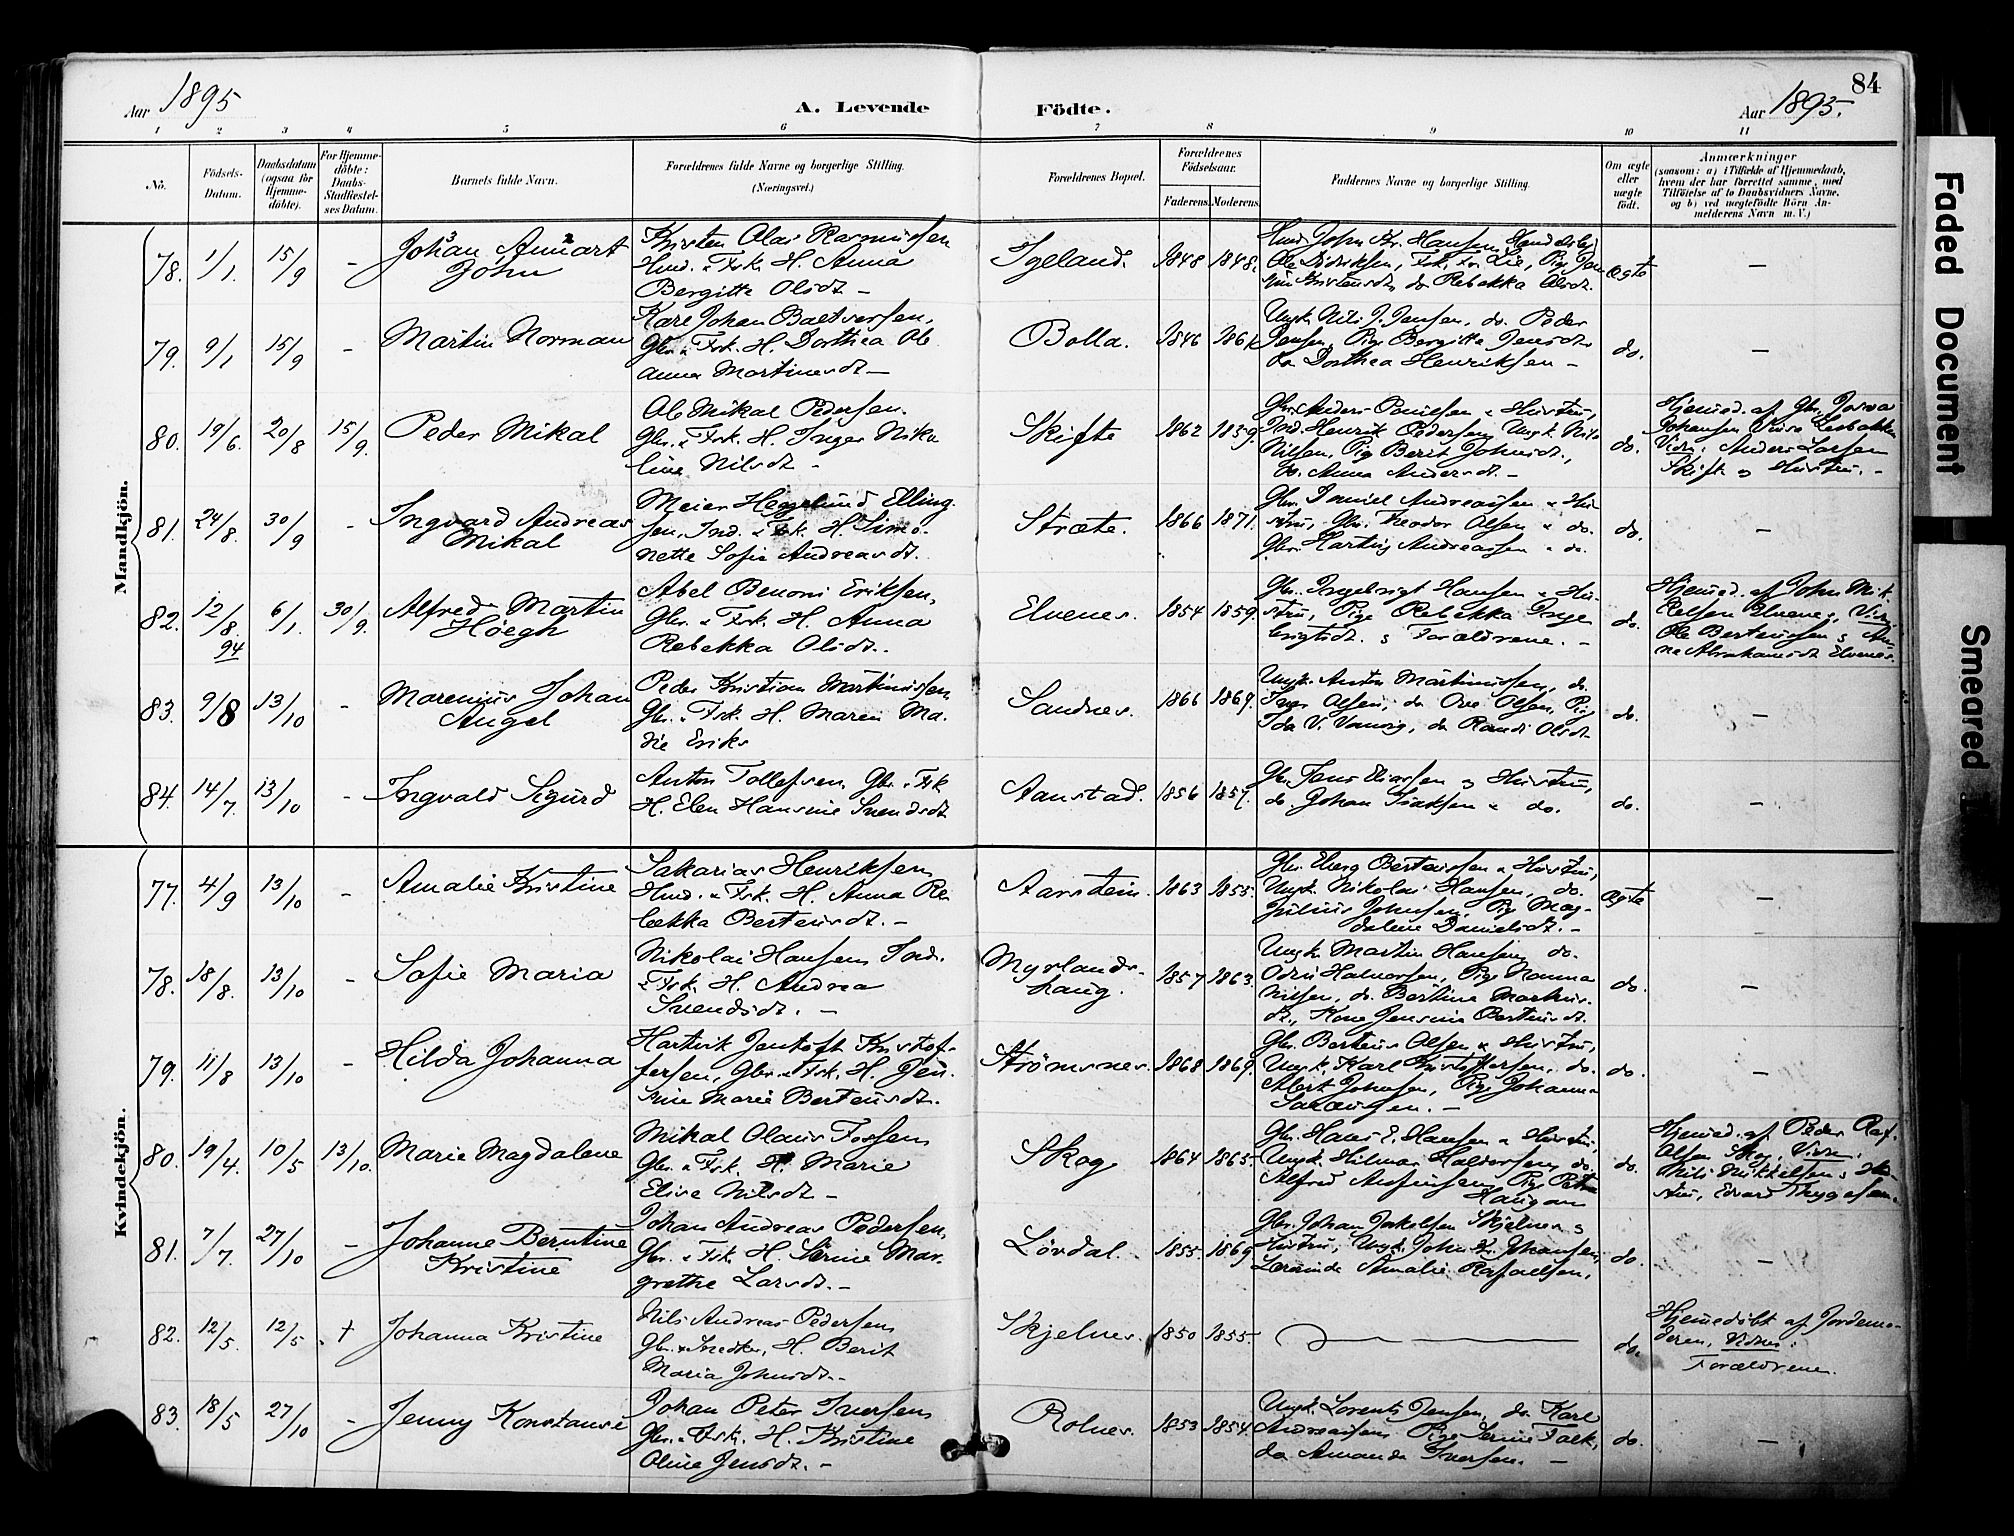 84
Aar 1895
A. Levende
Födte.
Aar 1895.
1 2 3 4 5 6 7 8 9 10 11
No.
Födsels-
Datum.
Daabsdatum
(ogsaa for
Hjemme-
döbte).
For Hjemme-
döbte:
Daabs-
Stadfæstel-
ses Datum.
Barnets fulde Navn.
Forældrenes fulde Navne og borgerlige Stilling.
(Næringsvei.)
Forældrenes Bopæl.
Forældrenes
Födselsaar.
Faderens.
Moderens.
Faddernes Navne og borgerlige Stilling.
Om ægte
eller
uægte
født.
Anmærkninger
(saasom: a) i Tilfælde af Hjemmedaab,
hvem der har forrettet samme, med
Tilföielse af to Daabsvidners Navne,
og b) ved uægtefödte Börn An-
melderens Navn m. V.)
Mandkjön.
78. 1/1. 15/9 - Johan Annart
John
Kristen Olai Rasmussen
Hmd. & Fisk. H. Anna
Bergitte Olsdt. -
Igeland. 1848 1848.
Hmd. John Kr. Hansen,
Ole Didriksen, Fisk. Fr. Lie, Pige
Kristensdt., do Rebekka Olsdt.
ægte -
79. 9/1 15/9 - Martin Norman
Karl Johan Baltsersen,
Gbr. & Fisk. H. Dorthea Ole
Anna Martinusdt -
Bolla. 1846 1861
Ungk. Nils J. Jensen, do. Peder
Jensen, Pige Bergitte Jensdt.
do Dorthea Henriksen -
do. -
80. 19/6. 20/8 15/9. Peder Mikal
Ole Mikal Pedersen.
Gbr. & Fisk. H. Inger Niko
line Nilsdt -
Skifte 1862 1859.
Gbr. Anders Paulsen & Hustru,
Ind. Henrik Pedersen, Ungk. Nils
Nilsen, Pige Berit Johnsdt.,
do. Anna Andersdt. -
do.
Hjemmed. af Gbr.
Johansen
Vidn: Anders Larsen
Skift & Hustru. -
81. 24/8. 30/9 - Ingvard Andreas
Mikal
Meier Hegelund Elling-
sen, Ind. & Fisk. H. Simo-
nette Sofie Andreasdt.
Stræte. 1866 1871.
Gbr. Daniel Andreassen & Hu-
stru, Gbr. Theodor Olsen & do.
Gbr. Hartvig Andreassen & do.
do. -
82. 12/8. 94 6/1. 30/9. Alfred Martin
Höegh
Abel Benoni Eriksen,
Gbr. & Fisk. H. Anna
Rebekka Olsdt..
Elvenes. 1854 1859.
Gbr. Ingebrigt Hansen & Hu-
stru, Pige Rebekka Inge
brigtsdt. & Forældrene. -
do.
Hjemmed. af John Mik
kelsen Elvenes, Vidn:
Ole Berteussen & An-
ne Abrahamsdt Elvenes.
83. 9/8 13/10 - Marenius Johan
Angel
Peder Kristian Martinussen
Gbr. & Fisk. H. Maren Ma-
die Eriks
Sandnes. 1866 1869.
Ungk. Anton Martinussen, do.
Iver Olsen, do Ove Olsen, Pig
Ida V. Vanvig, do Randi Olsdt.
do. -
84. 14/7. 13/10 - Ingvald Sigurd
Anton Tollefsen, Gbr. & Fisk
H. Elen Hansine Svendsdt
Aanstad. 1856 1857.
Gbr. Jens Eliassen og Hustru,
do. Johan Isaksen & do.
do. -
Kvindekjön.
77. 4/9 13/10 - Amalie Kristine
Sakarias Henriksen
Hmd. & Fisk. H. Anna Re
bekka Berteusdt. -
Aarstein. 1863 1855.
Gbr. Eberg Berteussen & Hustru,
Ungk. Nikolai Hansen, do.
Julius Johnsen, Pig Mag-
dalene Danielsdt. -
ægte -
78. 18/8. 13/10 - Sofie Maria
Nikolai Hansen Ind.
& Fisk. H. Andrea
Svendsdt. -
Myrlands-
haug. 1857 1863.
Ungk. Martin Hansen, do.
Odin Halvorsen, Pige Nanna
Nilsen, do. Bertine Markus-
dt., Kone Jensine Berteusdt.
do. -
79. 11/8 13/10 - Hilda Johanna
Hartvik Jentoft Kristof-
fersen, Gbr. & Fisk. H. Jen-
sine Marie Berteusdt.
Strömsnes. 1868 1869.
Gbr. Berteus Olsen & Hustru,
Ungk. Karl Kristoffersen, do.
Albert Johnsen, Pige Johanna
do. -
80. 19/4. 10/5 13/10. Marie Magdalene
Mikal Olaus Tossen
Gbr. & Fisk. H. Marie
Elise Nilsdt -
Skog 1864 1865.
Gbr. Hans E. Hansen & Hustru,
Ungk. Hilmar Haldorsen, do.
Alfred Pige Petra
Haugan
do.
Hjemmed. af Peder Raf.
Olsen Skog, Vidn:
Nils Mikkelsen & Hu-
stru, Edvard Thygesen.
81. 7/7. 27/10 - Johanne Berntine
Kristine
Johan Andreas Pedersen,
Gbr. & Fisk. H. Sörine Mar-
grethe Larsdt. -
Lövdal. 1855. 1869
Gbr. Johan Jakobsen Skjelnes &
Hustru, Ungk. John Kr. Johansen,
Amalie Rafaelsen,
do. -
82. 12/5. 12/5. † Johanna Kristine
Nils Andreas Pedersen
Gbr. & Snedker, H. Berit
Maria Johnsdt. -
Skjelnes. 1850 1855.
do.
Hjemmedöbt af Jordemo-
deren, Vidner:
Forældrene.
83. 18/5 27/10 - Jenny Konstanse
Johan Peter Iversen
Gbr. & Fisk. H. Kristine
Oline Jensdt. -
Rolnes. 1853 1854.
Ungk. Lorents Jensen, do. Karl
Andreassen Pige Serine Falk,
do Amanda Iversen. -
do. -
Faded Document
Smeared